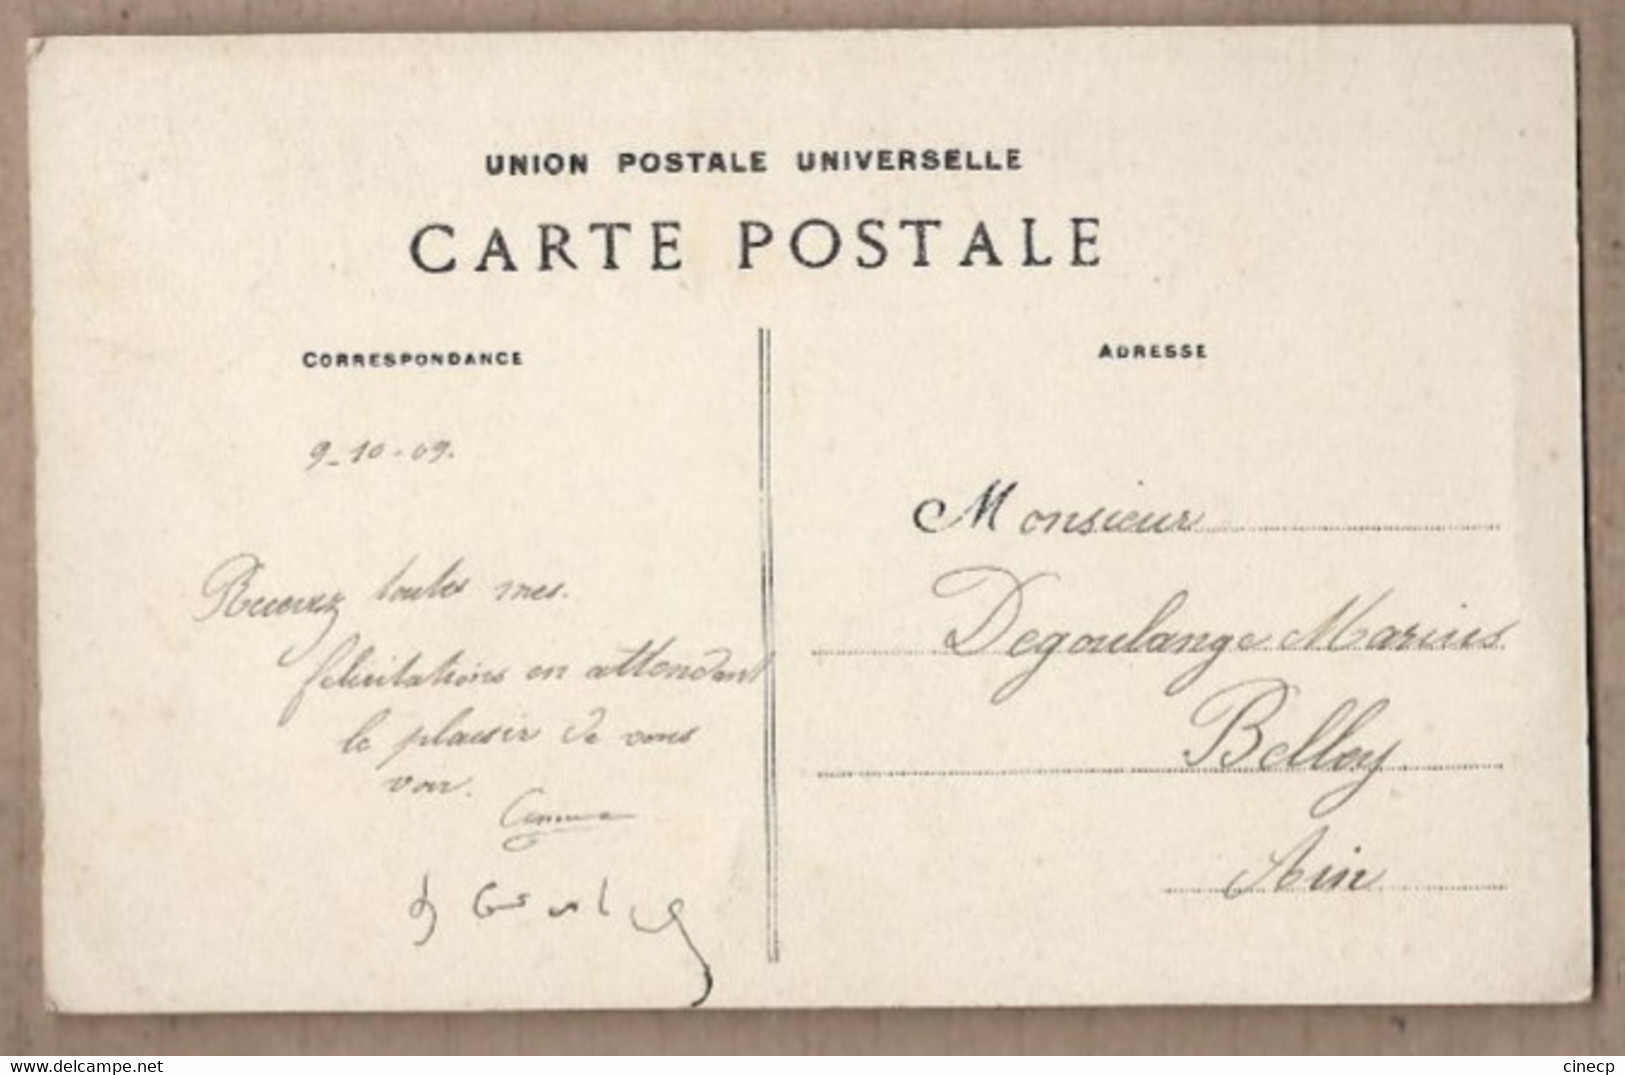 UNION POSTALE UNIVERSELLE
CARTE POSTALE
CORRESPONDANCE
ADRESSE
9-10-09.
Recevez toutes mes.
félicitations en attendant
le plaisir de vous
voir.
Monsieur
Degoulange Marius
Belley
Ain
cinecp